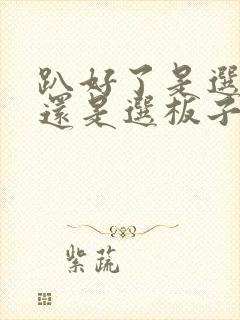 趴好了是選
還是選板子
紫蔬